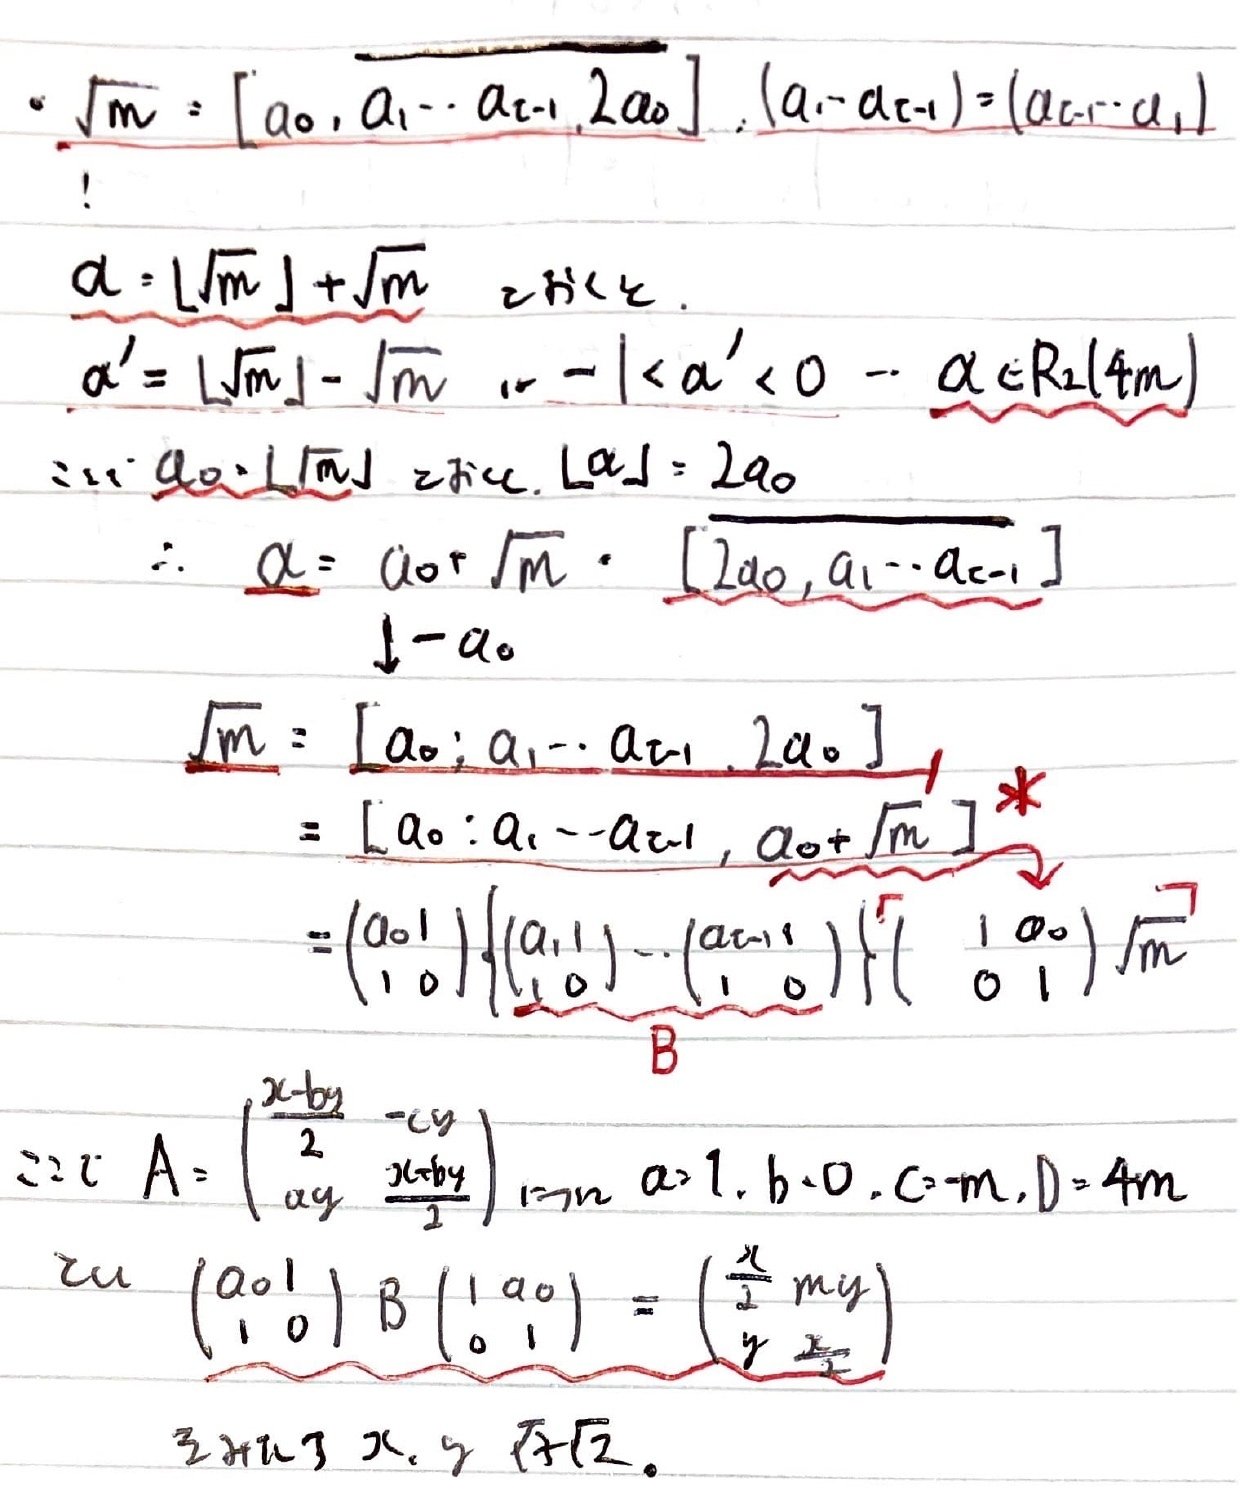 ・√m = [a₀, a₁‥a_{τ-1}, 2a₀], (a₁‥a_{τ-1}) = (a_{τ-1}‥a₁)
!
α = ⌊√m⌋ + √m とおくと.
α' = ⌊√m⌋ - √m は -1 < α' < 0 … α ∈ R₂(4m)
ここで a₀ = ⌊√m⌋ とおくと. ⌊α⌋ = 2a₀
∴ α = a₀ + √m = [2a₀, a₁‥a_{τ-1}]
↓ -a₀
√m = [a₀; a₁‥a_{τ-1}, 2a₀]
= [a₀ : a₁--a_{τ-1}, a₀+√m] *
= (a₀ 1 / 1 0){(a₁ 1 / 1 0)‥(a_{τ-1} 1 / 1 0)}「(1 a₀ / 0 1)√m
B
ここで A = ((x-by)/2 -cy / ay (x+by)/2) a=1, b=0, c=-m, D=4m
(a₀ 1 / 1 0) B (1 a₀ / 0 1) = (x/2 my / y x/2)
をみたす x, y 存在。